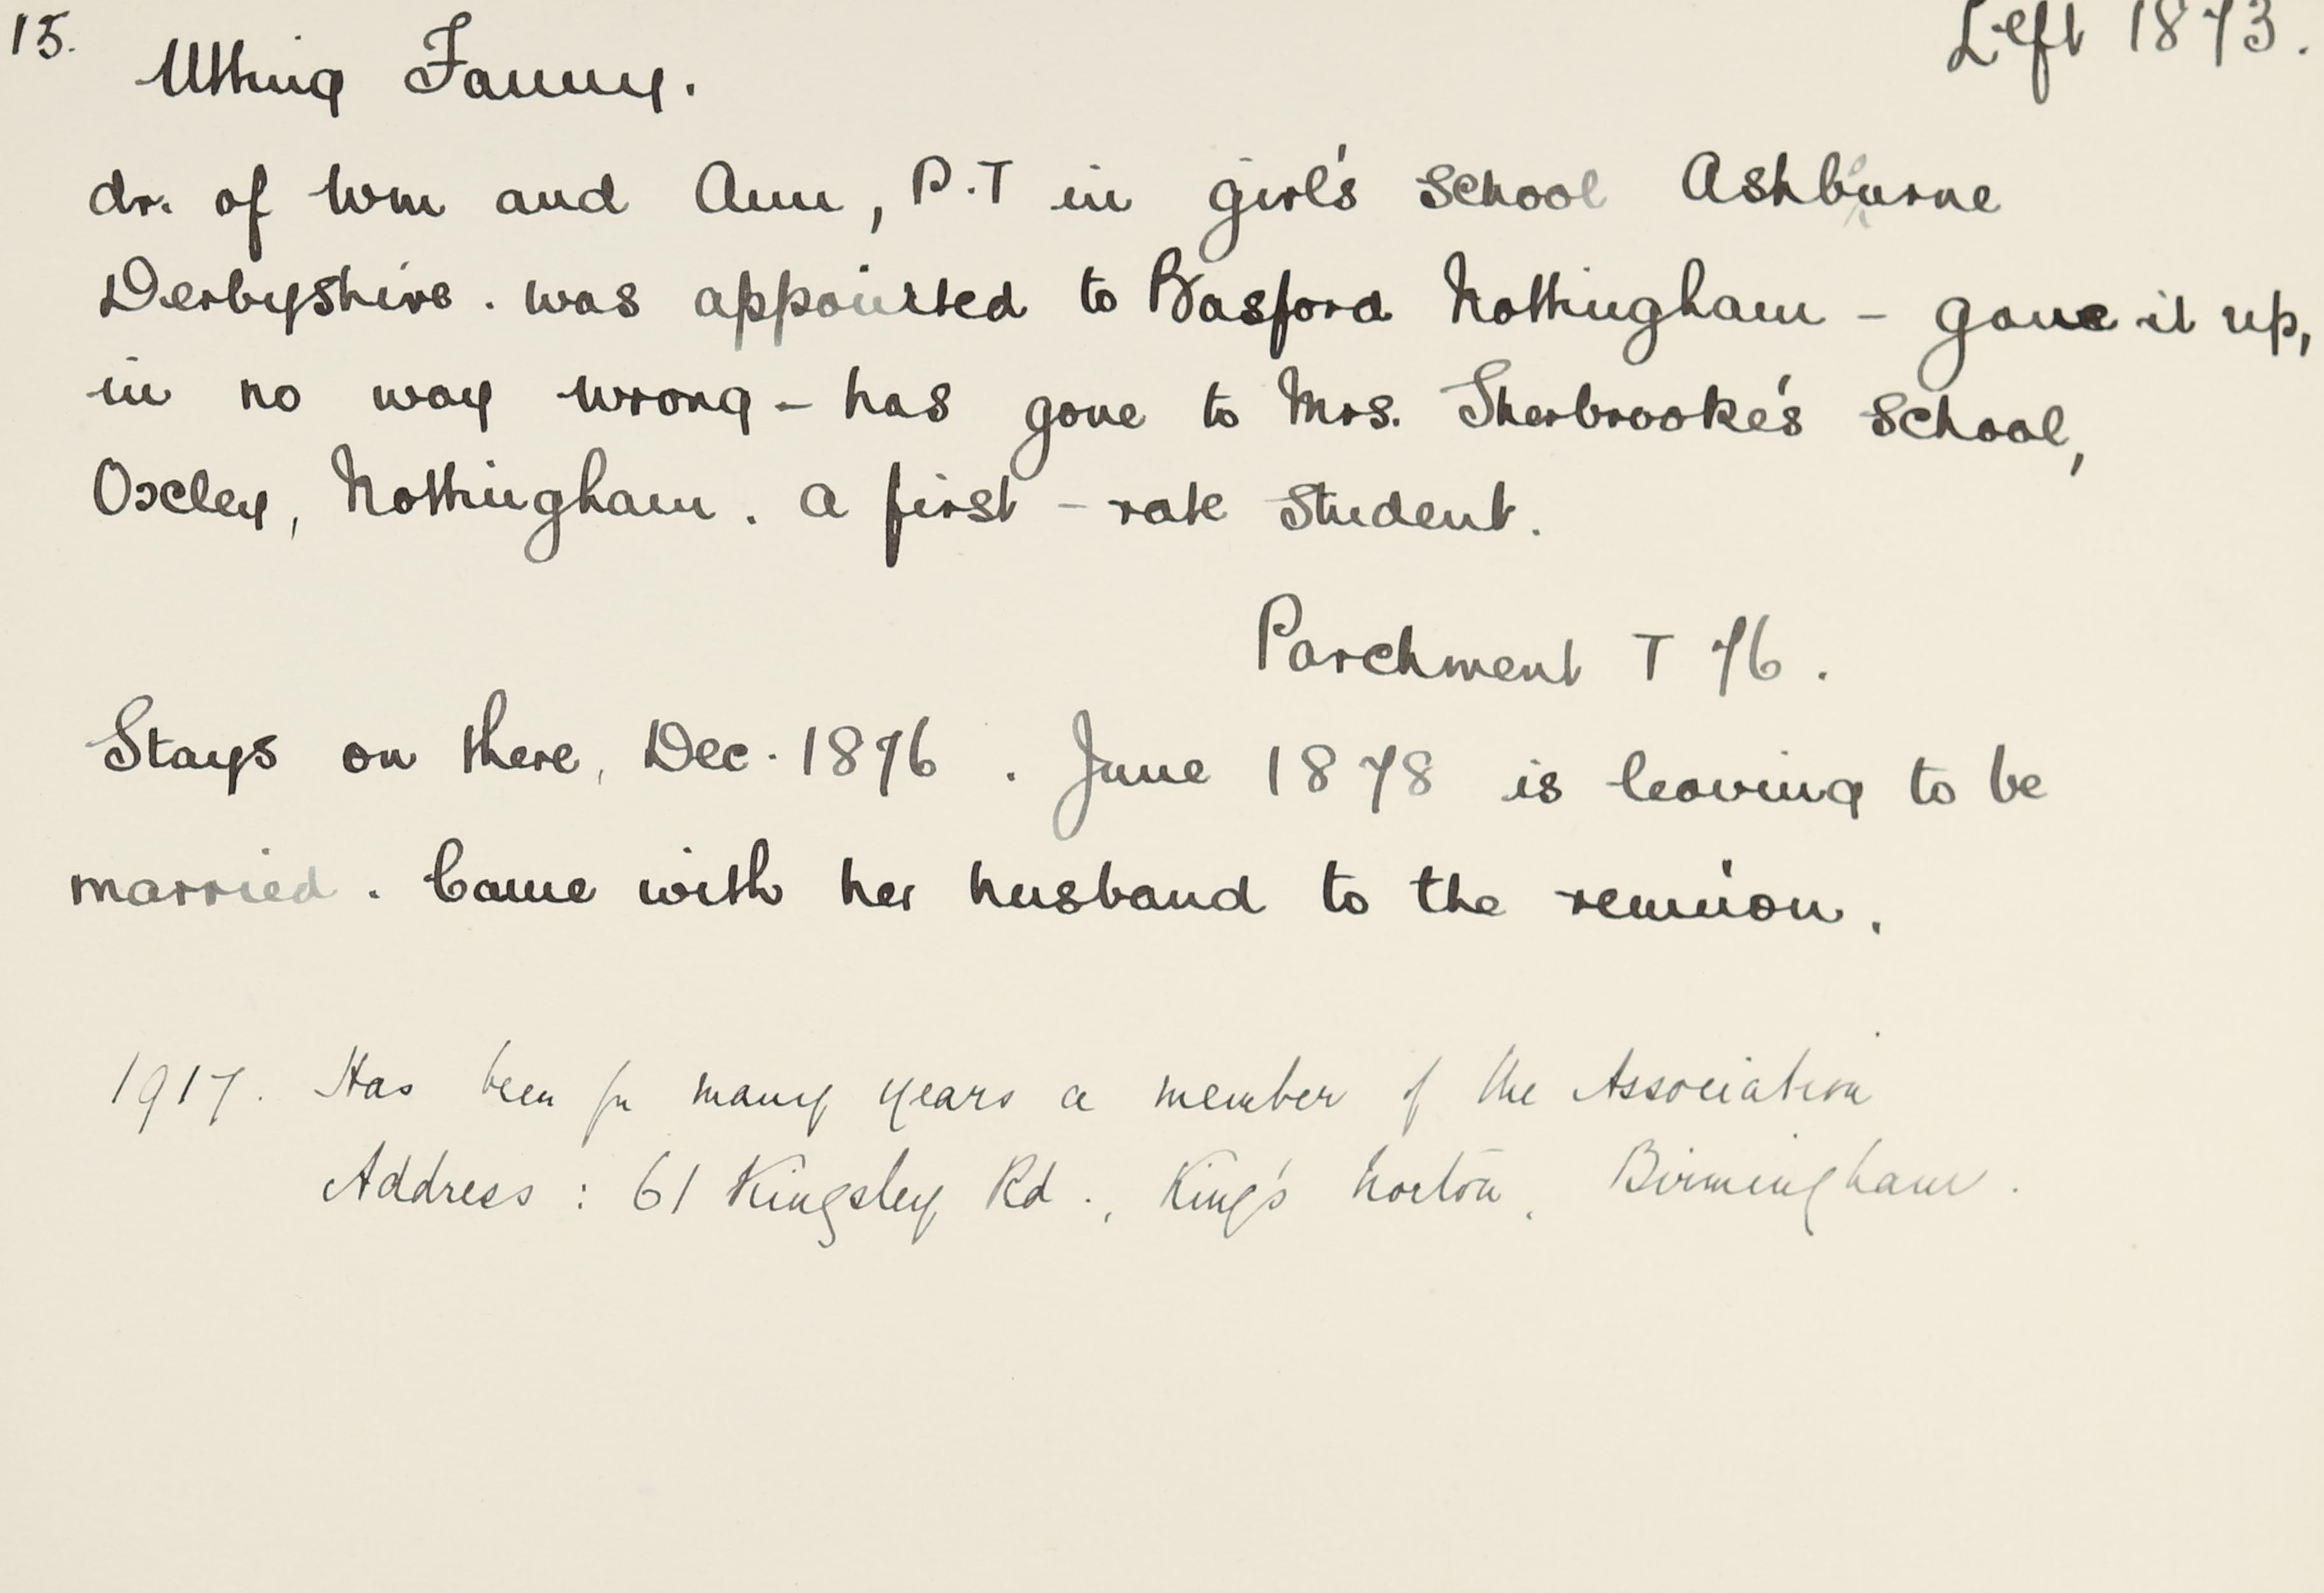 15. Left 1873.
Utting Fanny.
dr. of Wm and Ann, P.T in girl's school Ashburne
Derbyshire. was appointed to Basford Nottingham - gave it up,
in no way wrong - has gone to Mrs. Sherbrooke's school,
Oxley, Nottingham. A first-rate student.
Parchment T 76.
Stays on there, Dec. 1876. June 1878 is leaving to be
married. Came with her husband to the reunion.
1917. Has been for many years a member of the Association
Address: 61 Kingsley Rd., King's Norton, Birmingham.